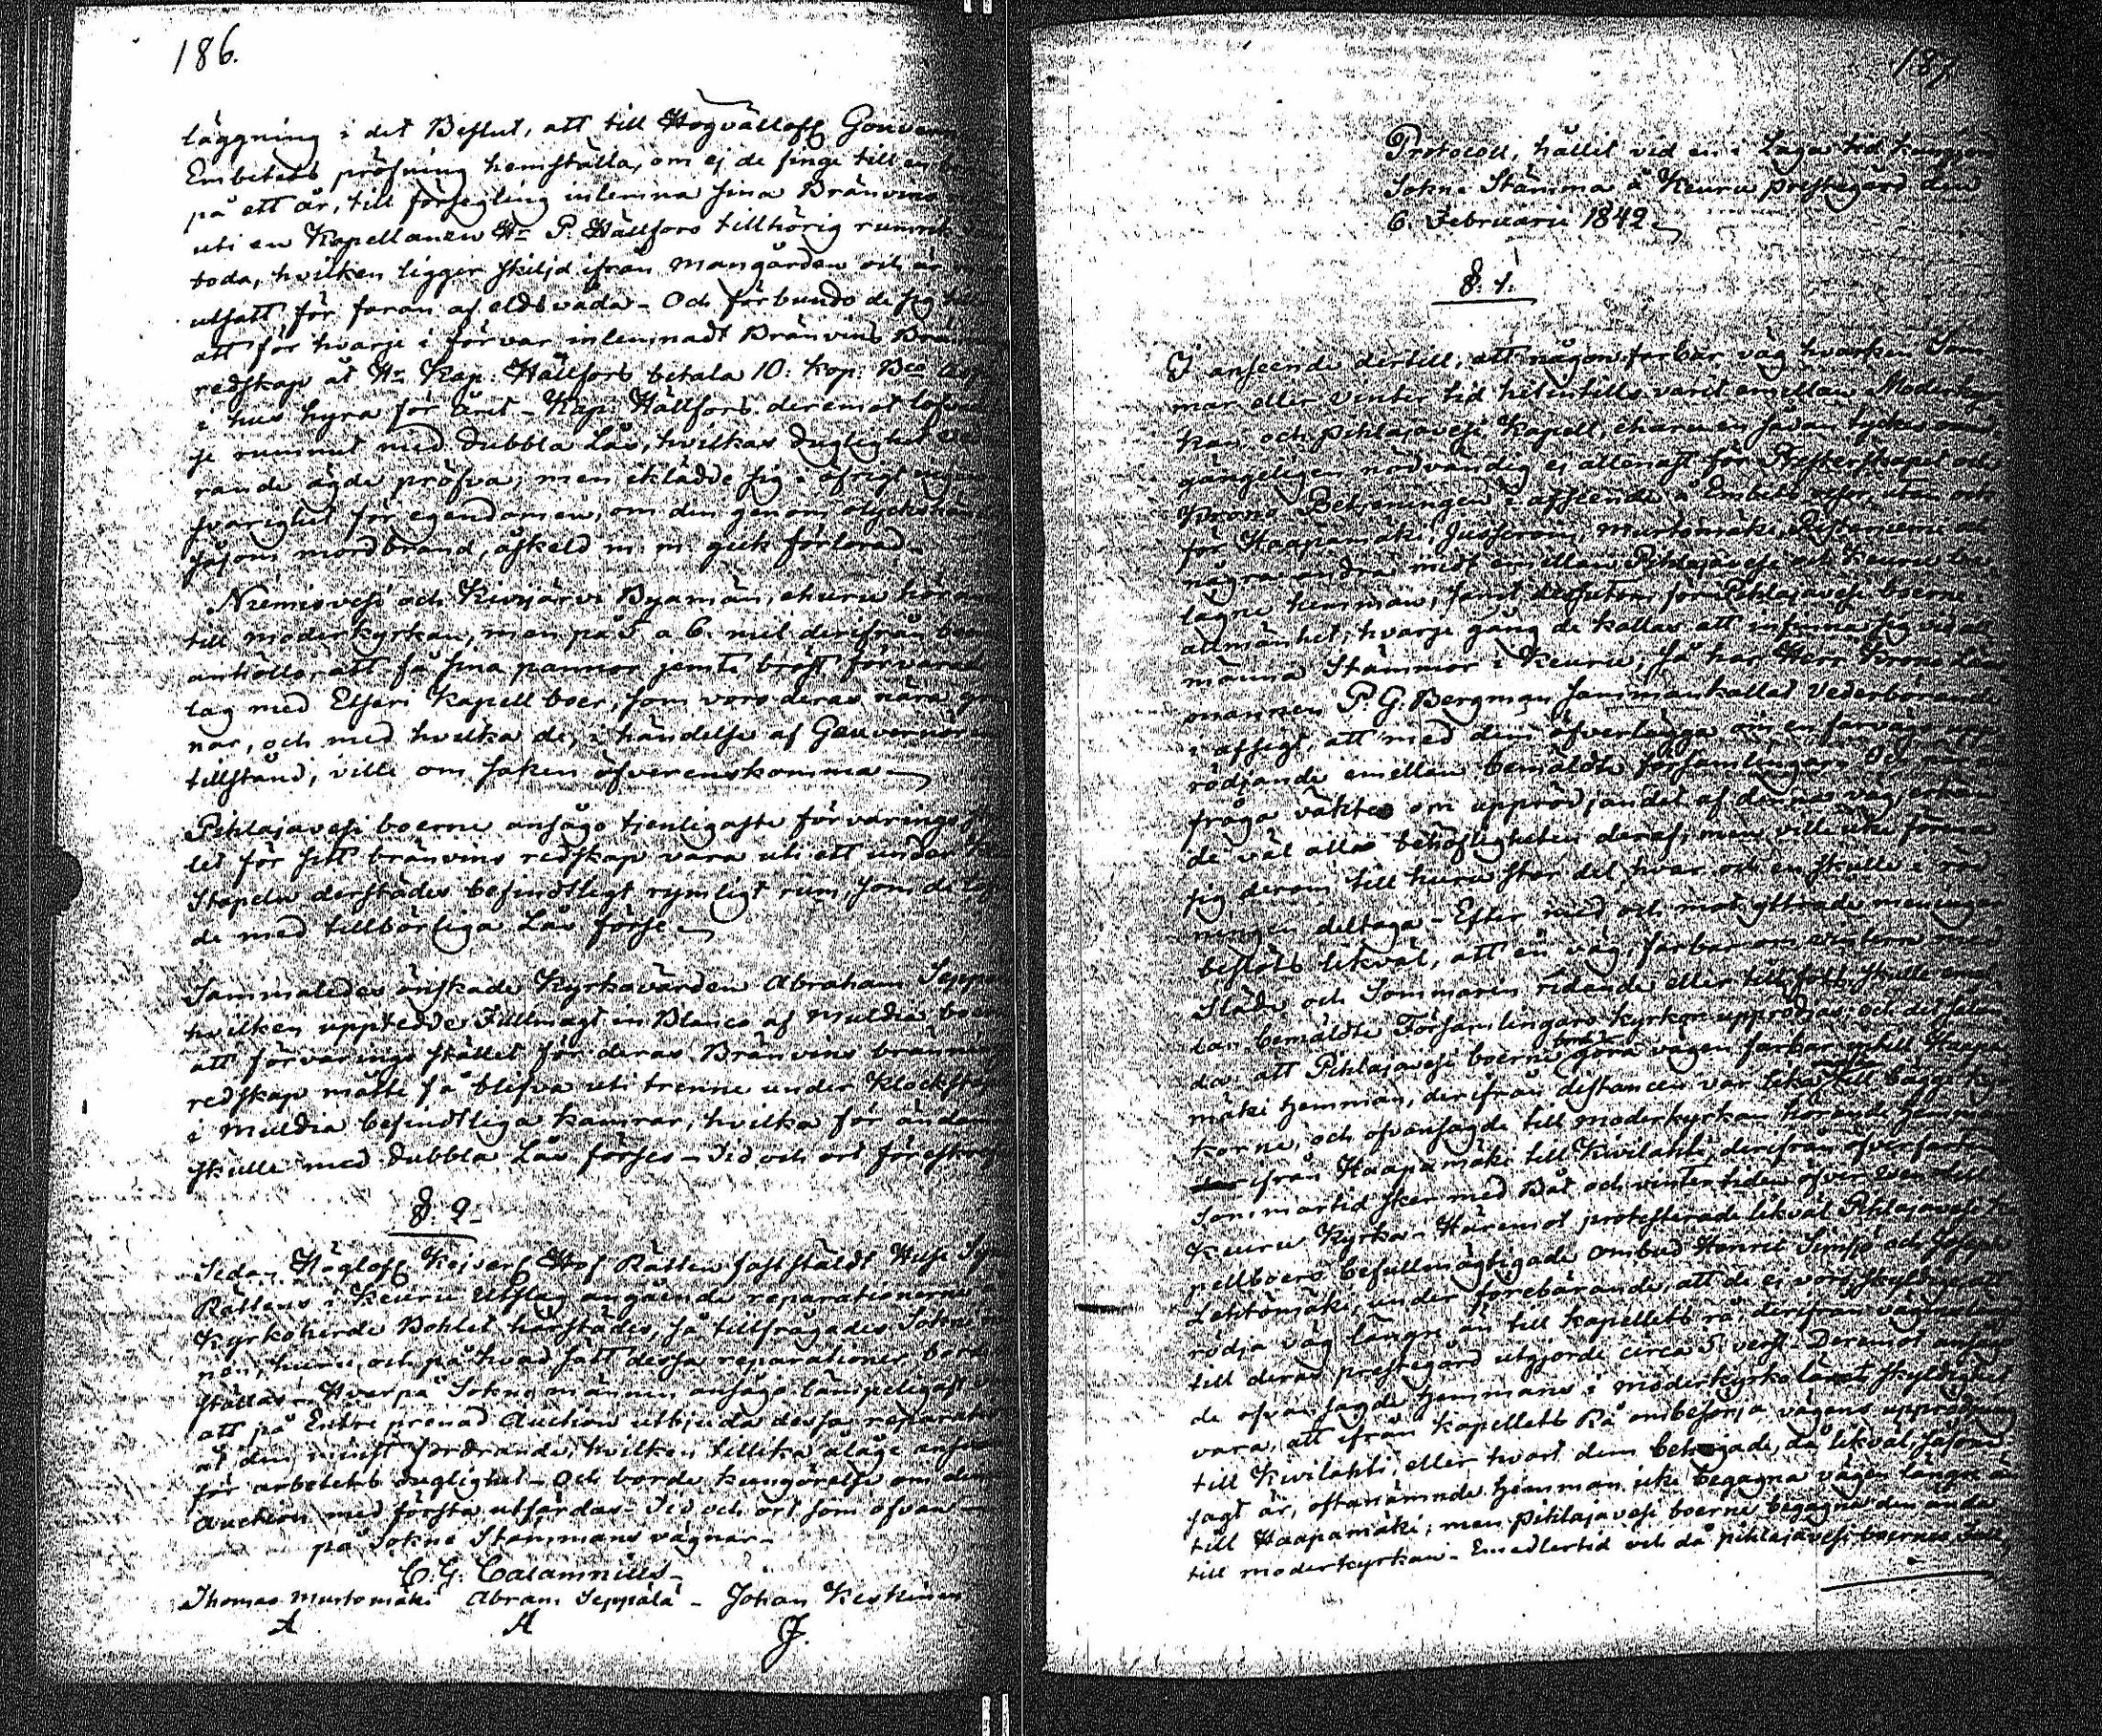 186.
läggning i det Beslut, att till Högvällofl Gouvern
Embetets pröfning hemställa, om ej de finge till en
på ett år, till försegling inlemna sina Bränvins
uti en Kapellanen Hr P. Hällfors tillhörig rummel
boda, hvilken ligger skiljd ifrån mangården och är
utsatt för faran af eldsvåda - Och förbundo de sig
att för hvarje i förvar inlemnadt Bränvins Brän
redskap åt Hr Kap: Hällfors betala 10. Kop: Bco
i hus hyra för året - Kap: Hällfors deremot lofvade
se rummet med dubbla Lås, hvilkas duglighet ve
rande ägde pröfva; men iklädde sig i öfrigt ingen
svarighet för egendomen, om den genom olyckshän
såsom mordbrand, åskeld m. m. gick förlorad -
Niemisvesi och Kivijärvi Byamän, ehuru höran
till moderkyrkan, men på 5 a 6. mil derifrån boen
anhöllo, att få sina pannor jemte bröst förvarad
lag med Etseri Kapell boer, som voro deras nära gra
nar, och med hvilka de, i händelse af Gouvernörens
tillstånd, ville om saken öfverenskomma -
Pihlajavesi boerne ansågo tjenligaste förvarings stäl
let för sitt bränvins redskap vara uti ett under
Stapeln derstädes befindtligt rymligt rum, som de lof
de med tillbörliga Lås förse -
Sammaledes önskade Kyrkovärden Abraham Seppä
hvilken upptedde Fullmagt in Blanco af Muldia boer
att förvarings stället för deras Bränvins brännings
redskap måtte få blifva uti trenne under Klockstap
i Muldia befindtliga kamrar, hvilka för ändam
skulle med dubbla Lås förses - Tid och ort föreskref
§. 2.
Sedan Höglofl Kejserl Hof Rätten fastställdt Husesyns
Rättens i Keuru Utslag angående reparationerne å
Kyrkoherde Bohlet härstädes, så tillfrågades Sokne
nen, huru och på hvad sätt dessa reparationer borde
ställas - Hvarpå Sokne männen ansågo lämpeligast vara
att på Entre prenad Auction utbjuda dessa reparation
åt den minst fordrande, hvilken tillika ålåge ansvar
för arbetets duglighet - Och borde kungörelse om denna
Auction med första utfärdas - Tid och ort som ofvan -
på Sokne Stämmans vägnar -
C. G. Calamnius -
Thomas Murtomäki Abram Seppälä - Johan Keskinen
A A J.
187
Protocoll, hållit vid en i Laga tid kungjord
Sokne Stämma å Keuru prestegård den
6. Februarii 1842 -
§. 1.
I anseende dertill, att någon farbar väg hvarken Som
mar eller Vinter tid hitintills varit emellan Moderkyr
kan och Pihlajavesi Kapell, eharuen sådan tyckes
gängeligen nödvändig ej allenast för Presterskapet och
Krono Betjeningen i afseende å Embets resor, utan och
för Haapamäki, Jusseroin, Murtomäki, Ristaniemi och
några andra midt emellan Pihlajavesi och Keuru be
lägne hemman, samt dessutom för Pihlajavesi boerne i
allmänhet, hvarje gång de kallas att infinna sig vid all
männa Stämmor i Keuru; så har Herr Krono Läns
mannen P. G. Bergman sammankallat Vederbörande
i afsigt, att med dem öfverlägga om en farvägs upp
rödjande emellan bemäldte församlingar. Och när nu
fråga väktes om upprödjandet af denna väg, erkän
de väl alla behöfligheten deraf, men ville icke förena
sig derom till huru stor del hvar och en skulle i röd
ningen deltaga - Efter med och mot yttrade meningar
beslöts likväl, att en väg, farbar om vintern med
Släde och Sommaren ridande eller till fots, skulle emel
lan bemäldte Församlingars kyrkor upprödjas, och det sålun
da, att Pihlajavesi boerne borde göra vägen farbar intill Haapa
mäki hemman, derifrån distancen var lika till bägge kyr
korne, och ofvansagde till moderkyrkan hörande hemman
ifrån Haapamäki till Kivilahti, derifrån öfverfarten
Sommartid sker med Båt och vintertiden öfver isen till
Keuru Kyrka - Häremot protesterade likväl Pihlajavesi Ka
pellboers befullmägtigade ombud Henric Simsiö och Joseph
Lehtomäki, under förebärande, att de ej voro skyldige att
rödja väg längre än till kapellets rå, derifrån väga
till deras prestegård utgjorde circa 5 verst. Deremot ansågo
de ofvan sagde hemmans i moderkyrko länet skyldighet
vara, att ifrån kapellets Rå ombesörja vägens upprödning
till Kivilahti, eller hvart dem behagade, då likväl, såsom
sagt är, oftanämnde hemman icke begagna vägen längre än
till Haapamäki; men Pihlajavesi boerne begagna den ända
till moderkyrkan - Emedlertid och då Pihlajavesi boernes Full